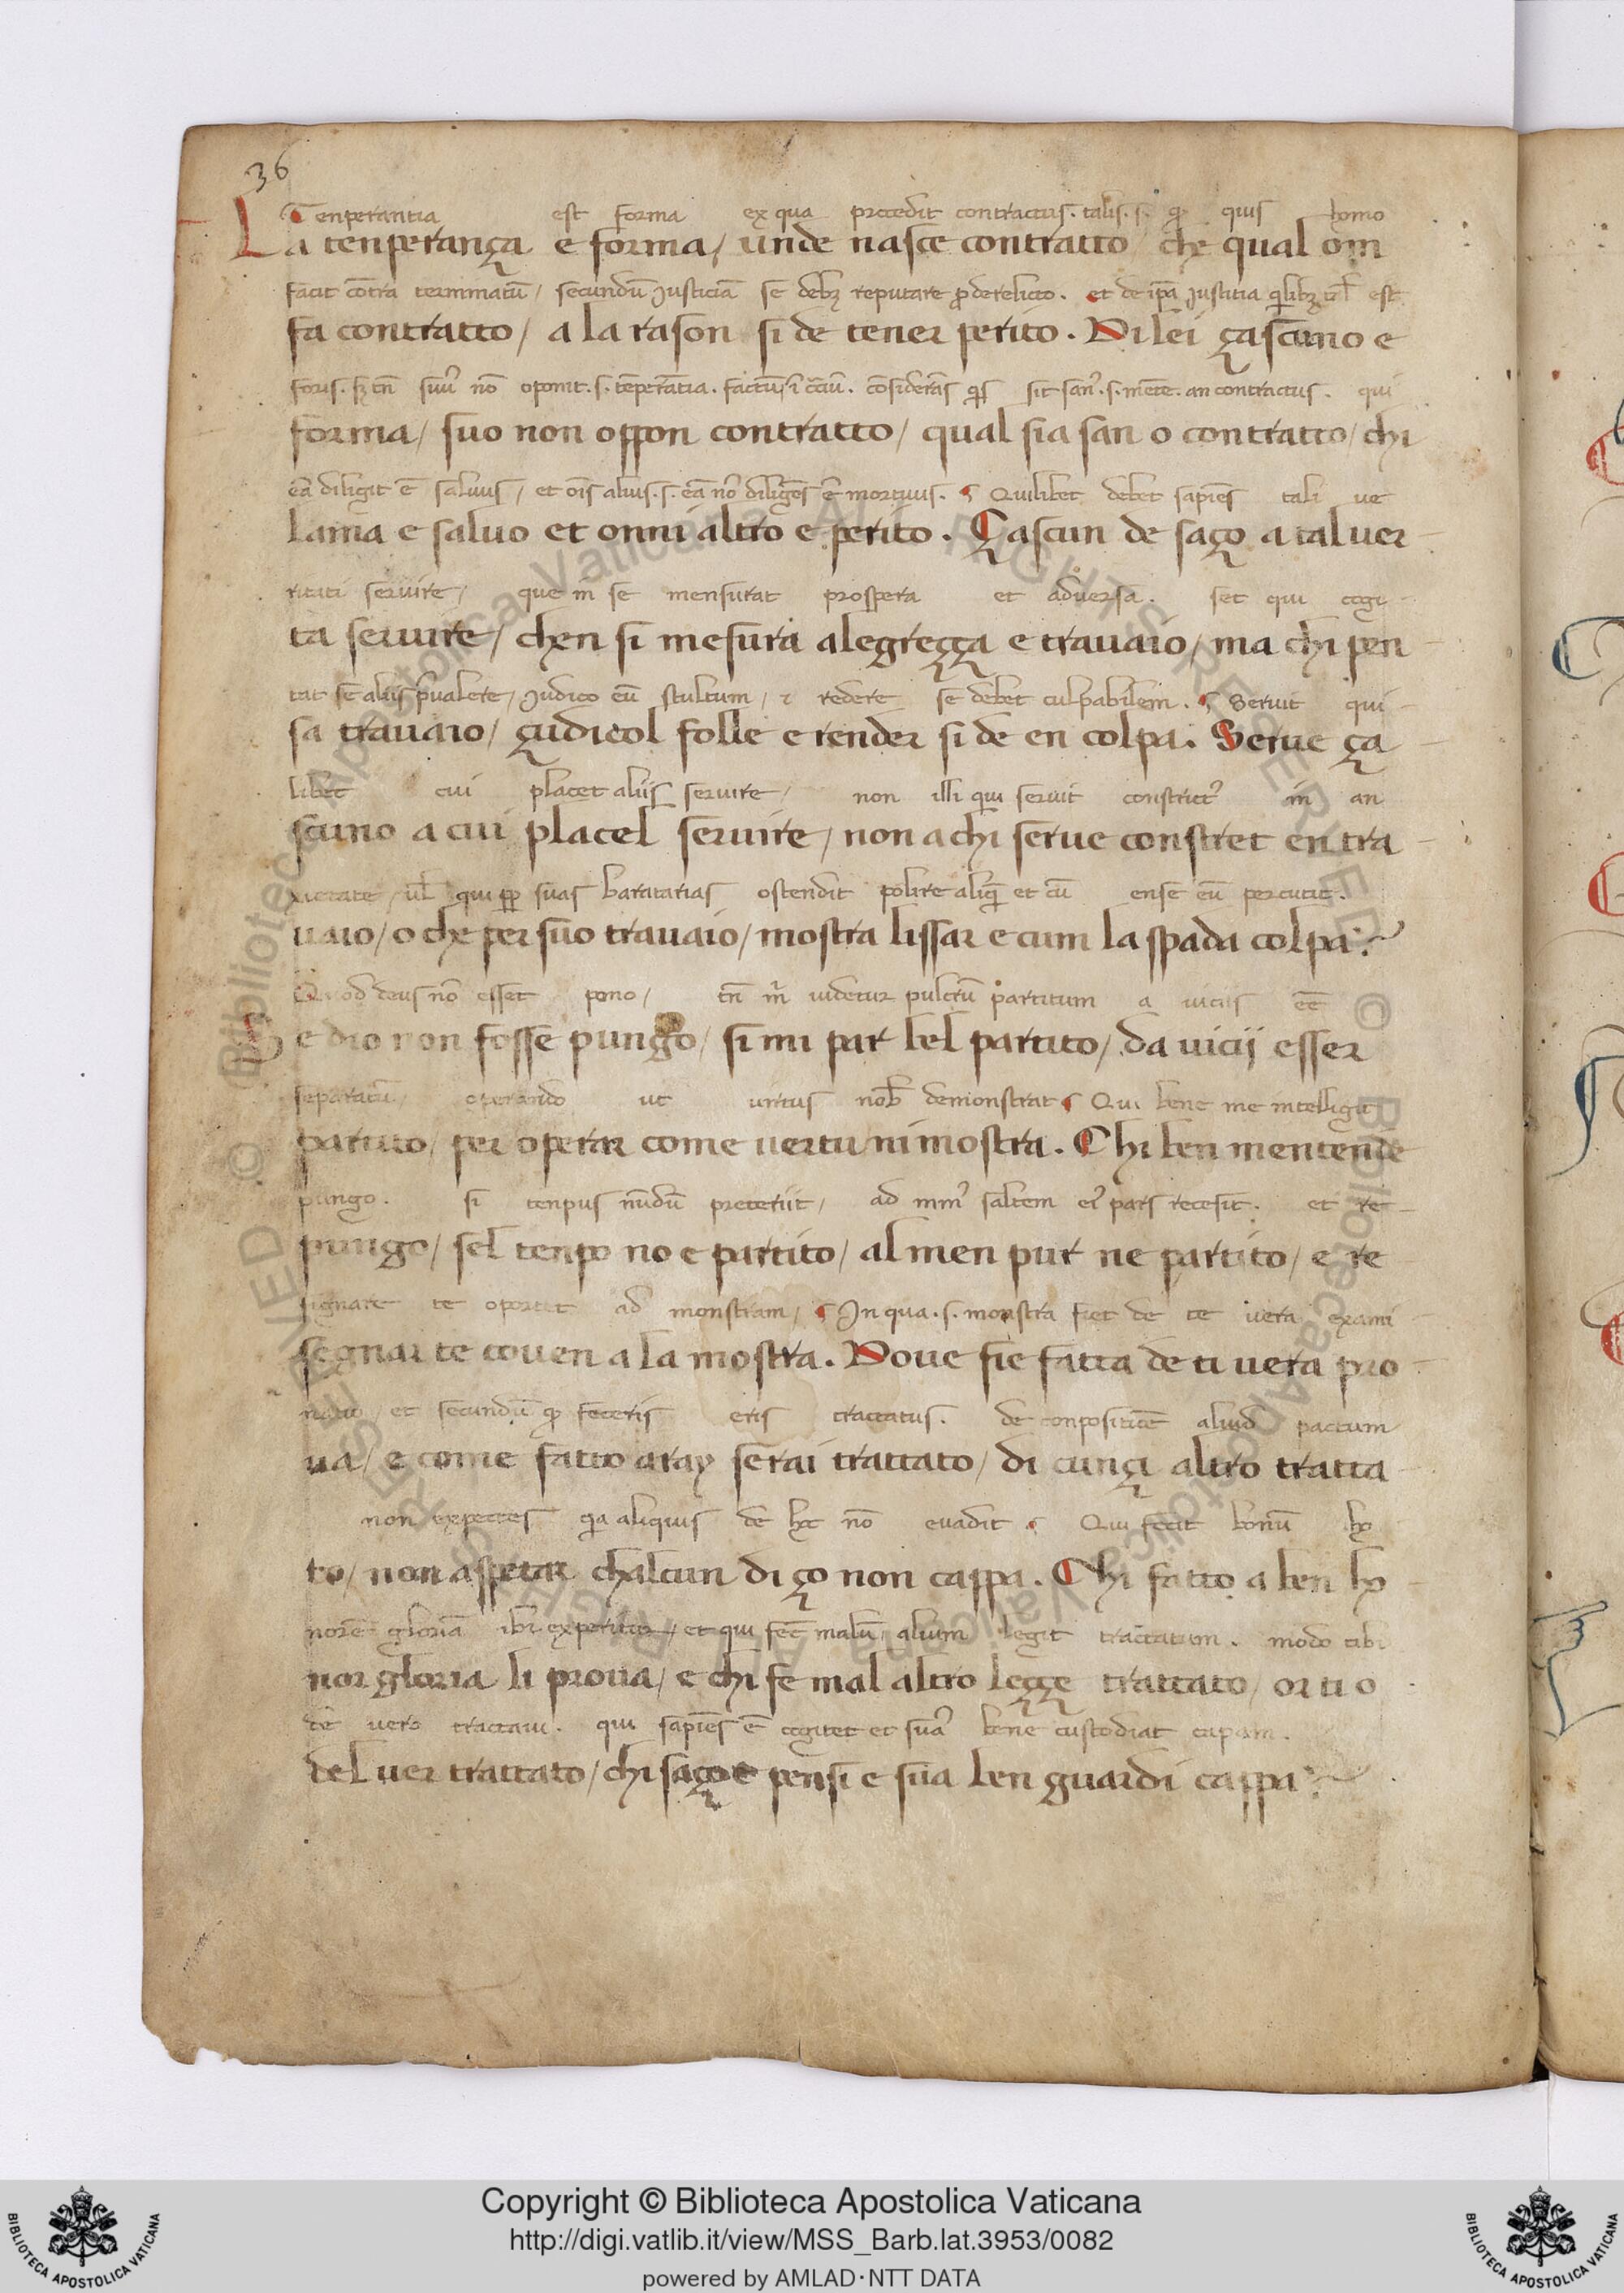 36
Tenperantia est forma ex qua procedit contractus. talis. s. qđ quis homo
La tenperança e forma / unde nasce contratto / che qual om
facit cōtra terminatū / secundū Justiciā se debꝫ reputare ꝓ derelicto. et de ip̄a Justitia quilibꝫ est
fa contratto / a la rason si de tener perito. Di lei çascuno e
foris. sꝫ tn̄ suū nō oponit. s. tēperātia. factū cōsiderās sit san. s. mēte. an contractus. qui
forma / suo non oppon contratto / qual sia san o contratto / chi
eā diligit ē salvus / et oīs alius. s. eā nō diligēs ē mortuus. Quilibet debet sapiēs tali ve
lama e salvo et onni altro e perito. Çascun de saço a tal ver
ritati servire / que in se mensurat prospera et adversa. set qui cogi
ta servire / chen si mesura alegreçça e travaio / ma chi pen
tat se aliis prevalere / Judico eū stultum / ⁊ redere se debet culpabilem. Servit qui
sa travaio / çudicol folle e render si de en colpa. Serve ça
libet cui placet aliis servire / non illi qui servit constrict᷒ in an
scuno a cui placel servire / non a chi serve constret en tra
xietate / ul̄ qui suas baratarias ostendit polire aliq̄ et cū ense eū percutit.
vaio / o che per suo travaio / mostra lissar e cum la spada colpa
Quod deus nō esset pono / tn̄ m̄ videtur pulcrū partitum a viciis eē
Se dio non fosse pungo / si mi par bel partito / da vicij esser
separatū / operando ut virtus nob̄ demonstrat Qui bene me intelligit
partito / per operar come vertu ni mostra. Chi ben mentende
pungo. si tenpus nūdū preteriit / ad saltem pars recesit. et re
pungo / sel tenpo no e partito / al men pur ne partito / e re
signare te oportet ad monstram / In qua. s. monstra fiet de te vera exami
segnar te coven a la mostra. Dove fie fatta de ti vera pro
natio / et secundū qđ feceris eris tractatus. de conpositiōe aliud pactum
va / e come fatto aray serai trattato / di cunçi altro tratta
non expectes qia aliquis de hoc nō evadit Qui fecit bonū ho
to / non aspetar chalcun di ço non cappa. Chi fatto a ben ho
norē gloriā ibi experitur / et qui fec̄ malū alium legit tractatum. modo tibi
nor gloria li prova / e chi fe mal altro legge trattato / or ti o
de vero tractavi. qui sapiēs ē cogitet et suā bene custodiat capam.
del ver trattato / chi saço e pensi e sua ben guardi cappa
Copyright © Biblioteca Apostolica Vaticana
http://digi.vatlib.it/view/MSS_Barb.lat.3953/0082
powered by AMLAD·NTT DATA
BIBLIOTECA APOSTOLICA VATICANA
BIBLIOTECA APOSTOLICA VATICANA